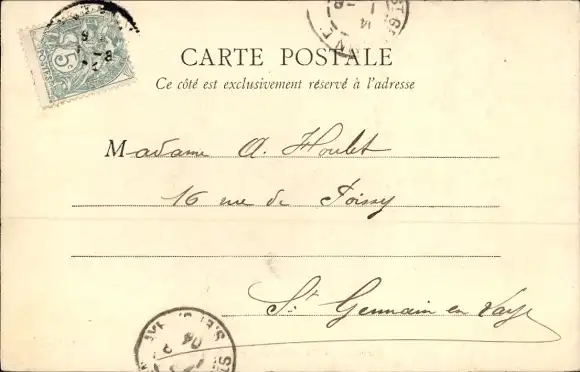 5
POSTES
CARTE POSTALE
Ce côté est exclusivement réservé à l'adresse
Madame A. Houlet
16 rue de Poissy
St Germain en Laye